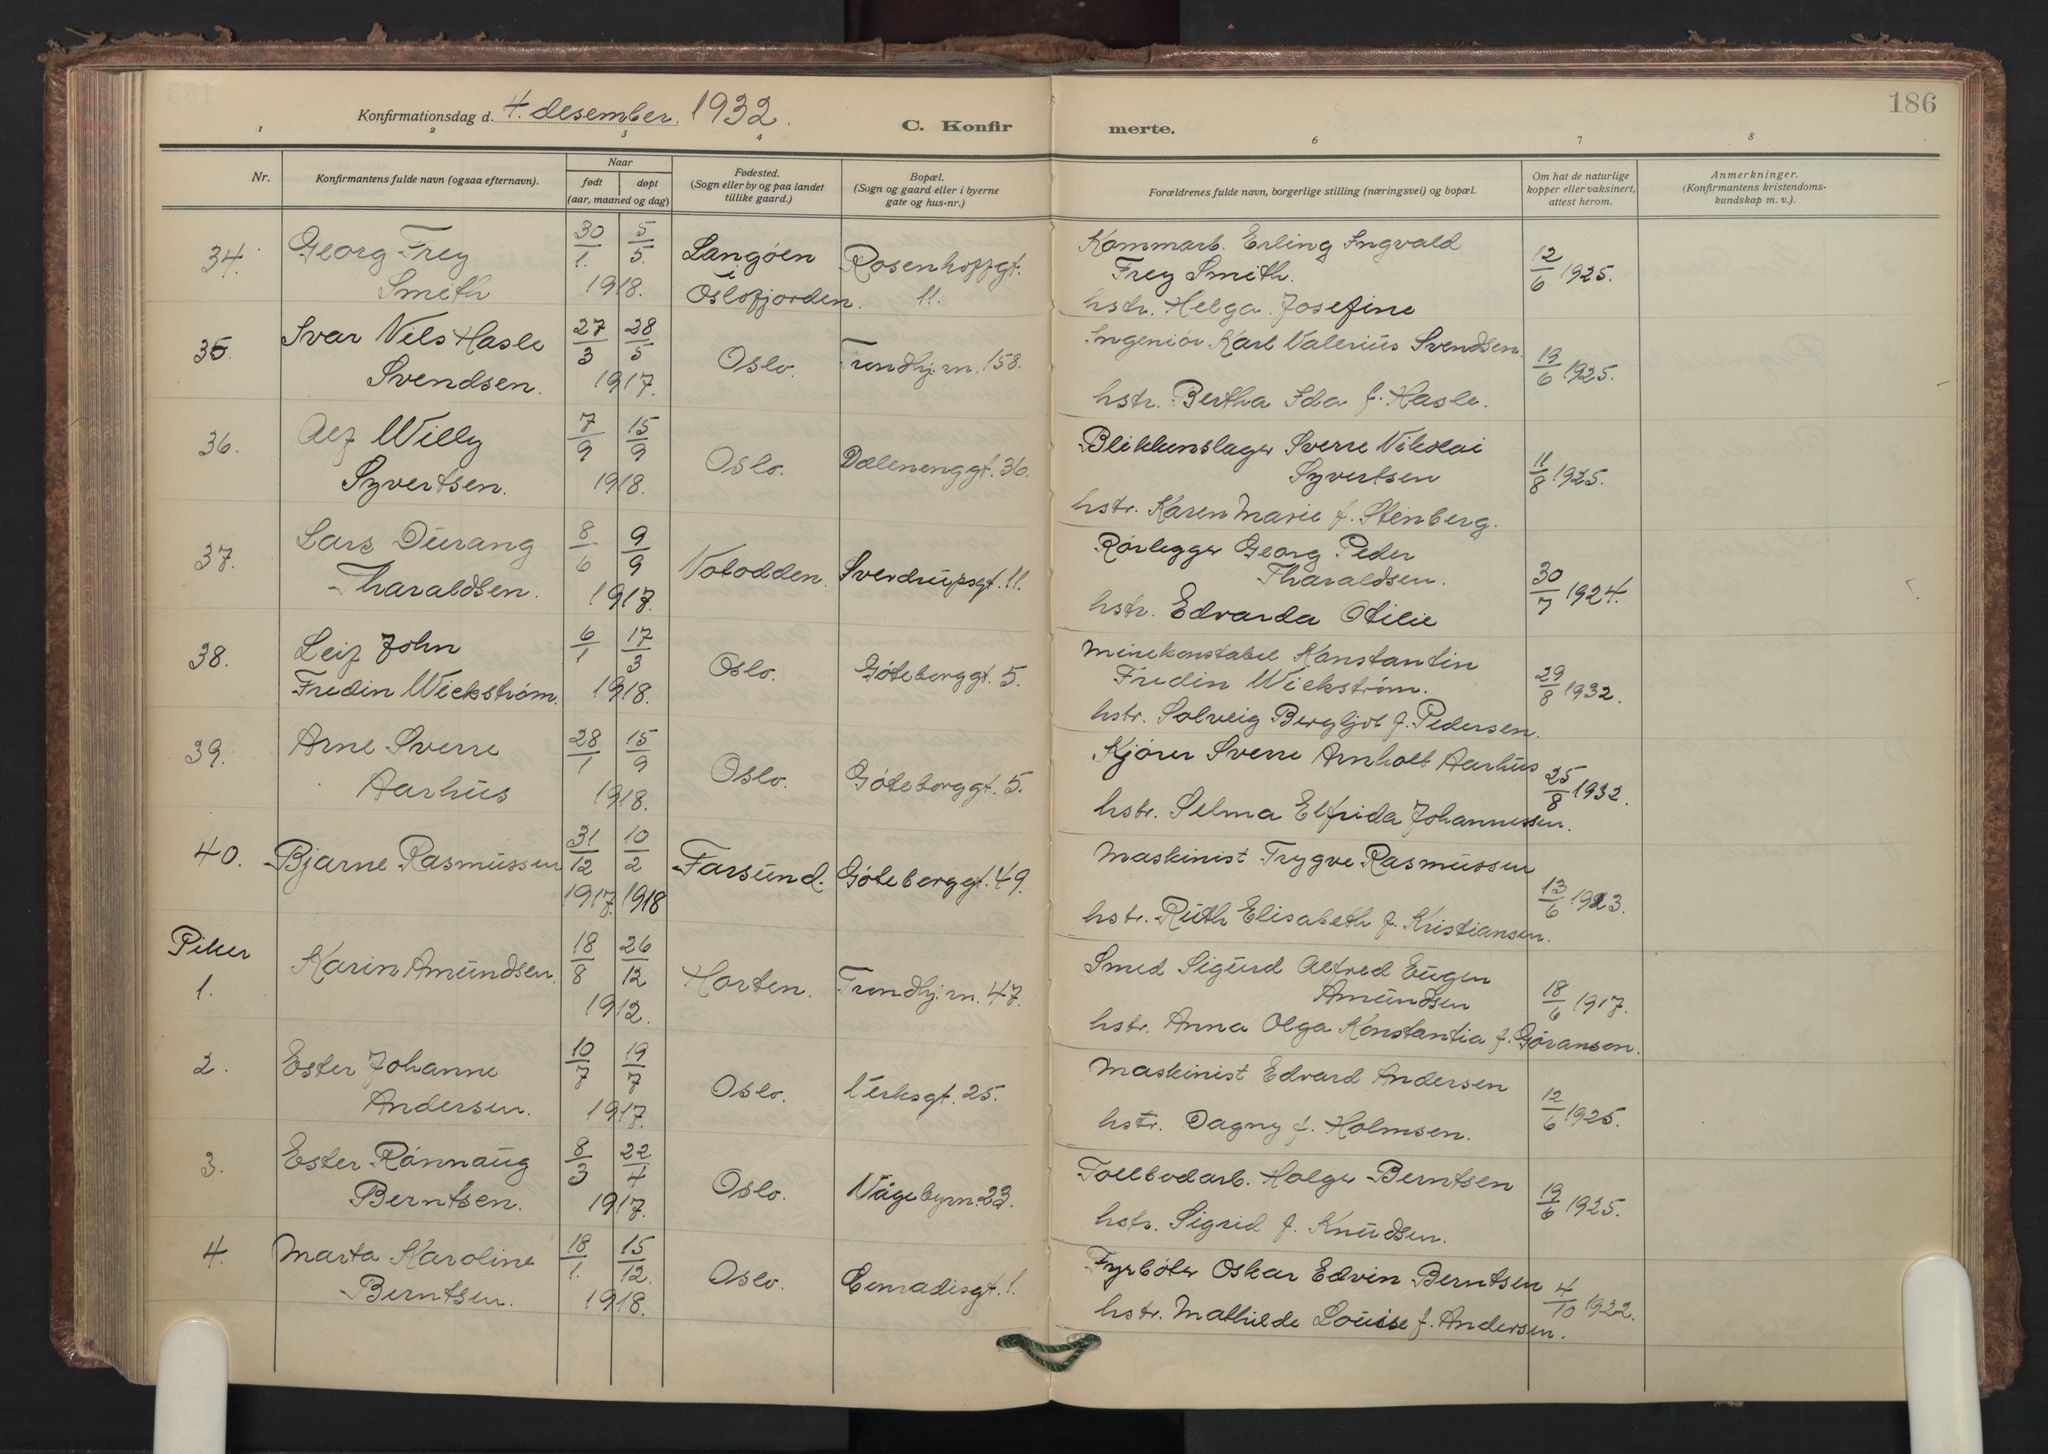 186
Konfirmationsdag d. 4. desember 1932.
C. Konfirmerte.
1 2 3 4 6 7 8
Nr.
Konfirmantens fulde navn (ogsaa efternavn).
Naar
født døpt
(aar, maaned og dag)
Fødested.
(Sogn eller by og paa landet
tillike gaard.)
Bopæl.
(Sogn og gaard eller i byerne
gate og hus-nr.)
Forældrenes fulde navn, borgerlige stilling (næringsvei) og bopæl.
Om hat de naturlige
kopper eller vaksinert,
attest herom.
Anmerkninger.
(Konfirmantens kristendoms-
kundskap m. v.).
34. Georg Frey 30/1. 5/5. Langøen Rosenhoffgt. Kommarb. Erling Ingvald 12/6 1925.
Smith 1918. i Oslofjorden. 11. Frey Smith.
hstr. Helga Josefine
35. Ivar Nils Hasle 27/3 28/5 Oslo. Trondhj.vn. 158. Ingeniør Karl Valerius Svendsen. 19/6 1925.
Svendsen. 1917. hstr. Bertha Ida f. Hasle.
36. Alf Willy 7/9 15/9 Oslo. Dælenenggt. 36. Blikkenslager Sverre Nikolai 11/8 1925.
Syvertsen. 1918. Syvertsen
hstr. Karen Marie f. Stenberg.
37. Lars Durang 8/6 9/9 Notodden. Sverdrupsgt. 11. Rørlegger Georg Peder 30/7 1924.
Tharaldsen. 1917. Tharaldsen.
hstr. Edvarda Otilie
38. Leif John 6/1 17/3 Oslo. Gøteborggt. 5. Minekonstabel Konstantin 29/8 1932.
Fredin Wickstrøm. 1918. Fredin Wickstrøm.
hstr. Solveig Bergljot f. Pedersen.
39. Arne Sverre 28/1 15/9 Oslo. Gøteborggt. 5. Kjører Sverre Arnholt Aarhus 25/8 1932.
Aarhus 1918. hstr. Selma Elfrida Johannessen.
40. Bjarne Rasmussen 31/12 10/2 Farsund. Gøteborggt. 49. Maskinist Trygve Rasmussen 13/6 1923.
1917. 1918 hstr. Ruth Elisabeth f. Kristiansen.
Piker
1. Karin Amundsen. 18/8 26/12 Horten. Trondhj.vn. 47. Smed Sigurd Alfred Eugen 18/6 1917.
1912. Amundsen
hstr. Anna Olga Konstantia f. Gøransen.
2. Ester Johanne 10/7 19/7 Oslo. Verksgt. 25. Maskinist Edvard Andersen 12/6 1925.
Andersen. 1917. hstr. Dagny f. Holmsen.
3. Ester Rønnaug 8/3 22/4 Oslo. Vågebyvn. 23. Tollbodarb. Holger Berntsen 19/6 1925.
Berntsen. 1917. hstr. Sigrid f. Knudsen.
4. Marta Karoline 18/1. 15/12. Oslo. Conradisgt. 1. Fyrbøter Oskar Edvin Berntsen 4/10 1922.
Berntsen. 1918. hstr. Mathilde Louise f. Andersen.